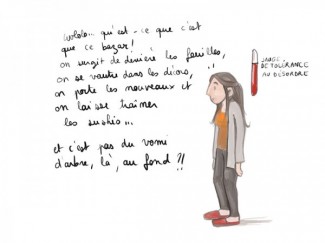 wololo... qu'est-ce que c'est
que ce bazar!
on surgit de derrière les familles,
on se vautre dans les décors,
on porte les nouveaux et
on laisse traîner
les sushis...
et c'est pas du vomi
d'arbre, là, au fond ?!
!!
JAUGE
DE TOLÉRANCE
AU DÉSORDRE